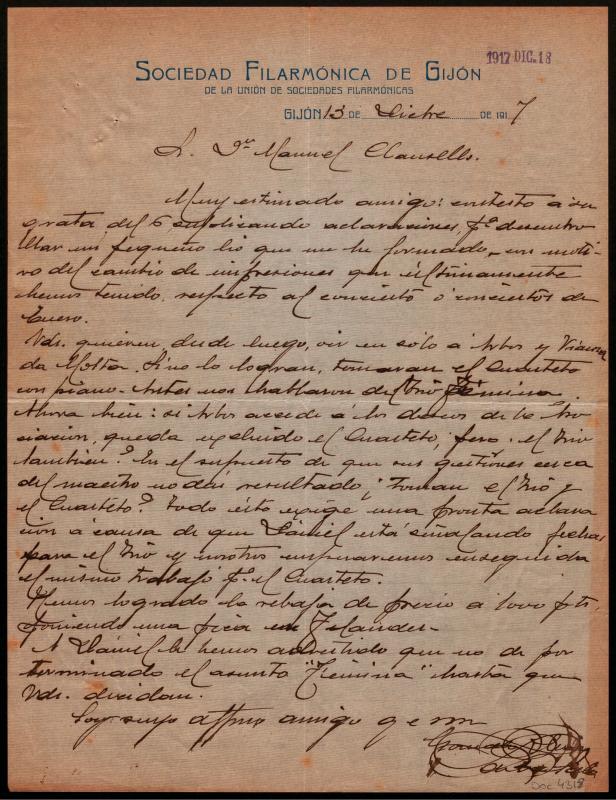 1917 DIC. 18
SOCIEDAD FILARMÓNICA DE GIJÓN
DE LA UNIÓN DE SOCIEDADES FILARMÓNICAS
GIJÓN 13 DE Dicbre DE 1917
S. Dn Manuel Clausells.
Muy estimado amigo: contesto a su
grata del 6 suplicando aclaraciones, pa desenro
llar un pequeño lio que me he formado, con moti-
vo del cambio de impresiones que ultimamente
hemos tenido, respecto al concierto ó conciertos de
Enero.
Vds. quieren, desde luego, oir en sólo á Arbos y Vianna
da Motta. Si no lo logran, tomaran el Cuarteto
con piano. Antes nos hablaron del Trio Fémina.
Ahora bien: si Arbos accede á los deseos de la Aso
ciacion, queda excluido el Cuarteto, pero ¿el Trio
tambien? En el supuesto de que sus gestiones cerca
del maestro no den resultado, ¿Toman el Trio y
el Cuarteto? Todo ésto exige una pronta aclara
cion á causa de que Dániel está señalando fechas
para el Trio y nosotros empezaremos enseguida
el mismo trabajo pa el Cuarteto.
Hemos logrado la rebaja de precio á 1000 pts.
poniendo una pica en Flandes.
A Dániel le hemos advertido que no dé por
terminado el asunto "Fémina" hasta que
Vds. decidan.
Soy suyo affmo amigo q e s m
Doc 4318